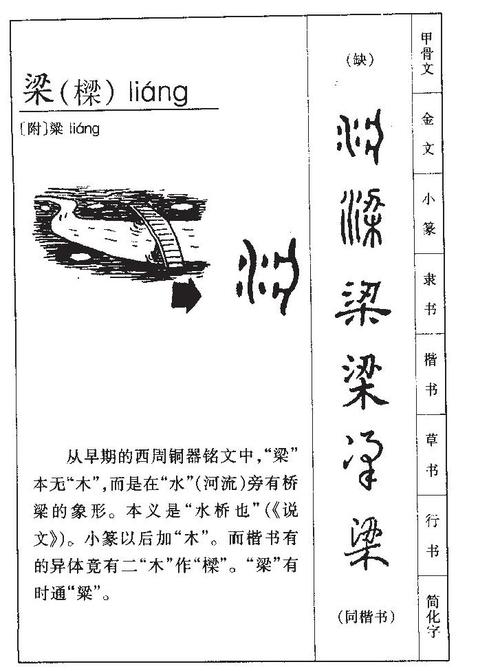 梁(樑) liáng
〔附〕粱 liáng
从早期的西周铜器铭文中,“梁”
本无“木”,而是在“水”(河流)旁有桥
梁的象形。本义是“水桥也”(《说
文》)。小篆以后加“木”。而楷书有
的异体竟有二“木”作“樑”。“梁”有
时通“粱”。
(缺) 甲骨文
梁 金文
梁 小篆
梁 隶书
梁 楷书
梁 草书
梁 行书
(同楷书) 简化字